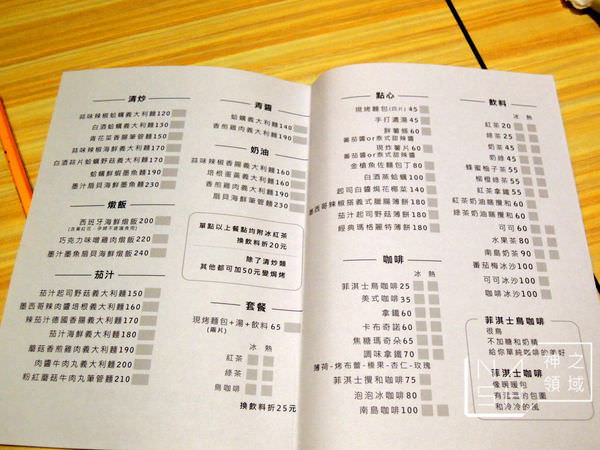 清炒
蒜味辣椒蛤蠣義大利麵120
白酒蛤蠣義大利麵130
青花菜香腸筆管麵150
蒜味辣椒海鮮義大利麵170
白酒蒜片蛤蠣野菇義大利麵170
蛤蠣鮮蝦墨魚麵190
墨汁扇貝海鮮墨魚麵230
燉飯
西班牙海鮮燉飯200
巧克力味噌雞肉燉飯220
墨汁墨魚扇貝海鮮燉飯240
茄汁
茄汁起司野菇義大利麵150
墨西哥辣肉醬培根義大利麵160
辣茄汁德國香腸義大利麵170
茄汁海鮮義大利麵180
蘑菇香煎雞肉義大利麵190
肉醬牛肉丸義大利麵200
粉紅蘑菇牛肉丸筆管麵210
青醬
蛤蠣義大利麵140
香煎雞肉義大利麵190
奶油
蒜味辣椒香腸義大利麵160
培根蛋黃義大利麵160
香煎雞肉義大利麵190
墨魚海鮮義大利麵190
單點以上餐點均附冰紅茶
換飲料折20元
除了清炒麵
其他都可加50元變焗烤
套餐
現烤麵包+湯+飲料 65
(兩片)
冰 熱
紅茶
綠茶
鳥咖啡
換飲料折25元
點心
現烤麵包(四片) 45
手打濃湯 45
鮮薯條 60
番茄醬or泰式甜辣醬
現炸薯片 60
番茄醬or泰式甜辣醬
金槍魚佐麵包丁 80
白酒蒸蛤蠣 100
起司白醬焗花椰菜 140
墨西哥辣椒搭義式臘腸薄餅 180
茄汁起司野菇薄餅 180
經典瑪格麗特薄餅 180
咖啡
冰 熱
菲淇士鳥咖啡 25
美式咖啡 35
拿鐵 60
卡布奇諾 60
焦糖瑪奇朵 65
調味拿鐵 70
薄荷-烤布蕾-榛果-杏仁-玫瑰
菲淇士攪和咖啡 75
泡泡冰咖啡 80
南島咖啡100
飲料
冰 熱
紅茶 20
綠茶 25
奶茶 45
奶綠 45
蜂蜜柚子茶 55
檸檬綠茶 55
紅茶拿鐵 55
紅茶奶油糖攪和 60
綠茶奶油糖攪和 60
可可 60
水果茶 80
南島奶茶 90
番茄梅冰沙 100
可可冰沙 100
咖啡冰沙 100
菲淇士鳥咖啡
很鳥
不加糖和奶精
給你單純咖啡的美好
菲淇士咖啡
像暖暖包
有溫溫的包圍
和冷冷的風
神之
領域